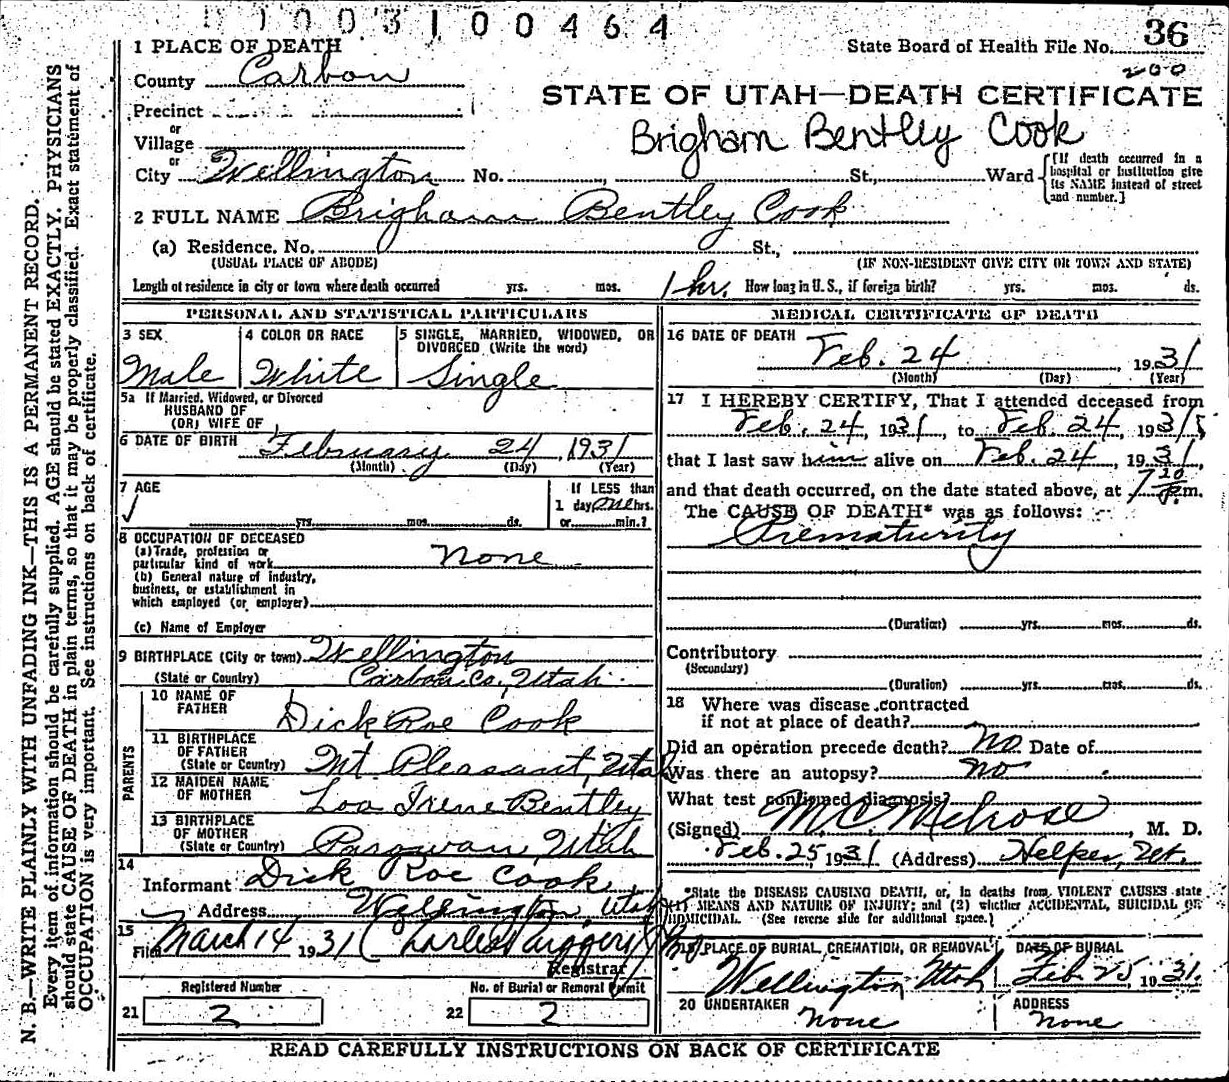 1003100464
36
State Board of Health File No.
200
1 PLACE OF DEATH
County Carbon
STATE OF UTAH—DEATH CERTIFICATE
Precinct
or
Village
Brigham Bentley Cook
or
City Wellington No. , St., Ward {[If death occurred in a hospital or institution give its NAME instead of street and number.]
2 FULL NAME Brigham Bentley Cook
(a) Residence. No. St.,
(USUAL PLACE OF ABODE) (IF NON-RESIDENT GIVE CITY OR TOWN AND STATE)
Length of residence in city or town where death occurred yrs. mos. 1 hr. How long in U. S., if foreign birth? yrs. mos. ds.
PERSONAL AND STATISTICAL PARTICULARS
3 SEX 4 COLOR OR RACE 5 SINGLE, MARRIED, WIDOWED, OR
DIVORCED (Write the word)
Male White Single
5a If Married, Widowed, or Divorced
HUSBAND OF
(OR) WIFE OF
6 DATE OF BIRTH February 24, 1931
(Month) (Day) (Year)
7 AGE If LESS than
✓ 1 day one hrs.
yrs. mos. ds. or min.?
8 OCCUPATION OF DECEASED
(a) Trade, profession or
particular kind of work None
(b) General nature of industry,
business, or establishment in
which employed (or employer)
(c) Name of Employer
9 BIRTHPLACE (City or town) Wellington
(State or Country) Carbon Co., Utah.
PARENTS
10 NAME OF
FATHER Dick Roe Cook
11 BIRTHPLACE
OF FATHER
(State or Country) Mt. Pleasant, Utah
12 MAIDEN NAME
OF MOTHER Loa Irene Bentley
13 BIRTHPLACE
OF MOTHER
(State or Country) Parowan, Utah
14
Informant Dick Roe Cook
Address Wellington, Utah
15
Filed March 14 1931 Charles
Registrar
Registered Number No. of Burial or Removal Permit
21 2 22 2
MEDICAL CERTIFICATE OF DEATH
16 DATE OF DEATH
Feb. 24, 1931
(Month) (Day) (Year)
17 I HEREBY CERTIFY, That I attended deceased from
Feb. 24, 1931, to Feb. 24, 1931,
that I last saw him alive on Feb. 24, 1931,
and that death occurred, on the date stated above, at 7 20 p.m.
The CAUSE OF DEATH* was as follows:
Prematurity
(Duration) yrs. mos. ds.
Contributory
(Secondary)
(Duration) yrs. mos. ds.
18 Where was disease contracted
if not at place of death?
Did an operation precede death? No Date of
Was there an autopsy? No
What test confirmed diagnosis?
(Signed) M. C. Melrose, M. D.
Feb. 25 1931 (Address) Helper, Ut.
*State the DISEASE CAUSING DEATH, or, in deaths from VIOLENT CAUSES state
(1) MEANS AND NATURE OF INJURY; and (2) whether ACCIDENTAL, SUICIDAL OR
HOMICIDAL. (See reverse side for additional space.)
PLACE OF BURIAL, CREMATION, OR REMOVAL DATE OF BURIAL
Wellington Utah Feb. 25, 1931.
20 UNDERTAKER ADDRESS
None None
READ CAREFULLY INSTRUCTIONS ON BACK OF CERTIFICATE
N. B.—WRITE PLAINLY WITH UNFADING INK—THIS IS A PERMANENT RECORD.
Every item of information should be carefully supplied. AGE should be stated EXACTLY. PHYSICIANS
should state CAUSE OF DEATH in plain terms, so that it may be properly classified. Exact statement of
OCCUPATION is very important. See instructions on back of certificate.